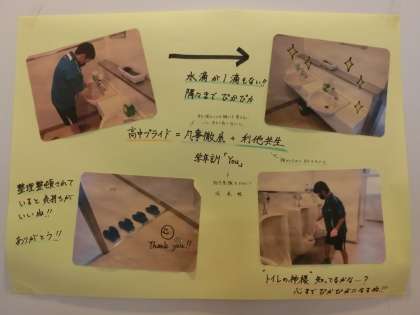 水滴が1滴もない!!
隅々まで ぴかぴか
高中プライド = 凡事徹底 + 利他共生
学年訓「You」
整理整頓されて
いると気持ちが
いいね!!
ありがとう!!
Thank you!!
"トイレの神様" 知ってるかな…?
心までぴかぴかになるね!!